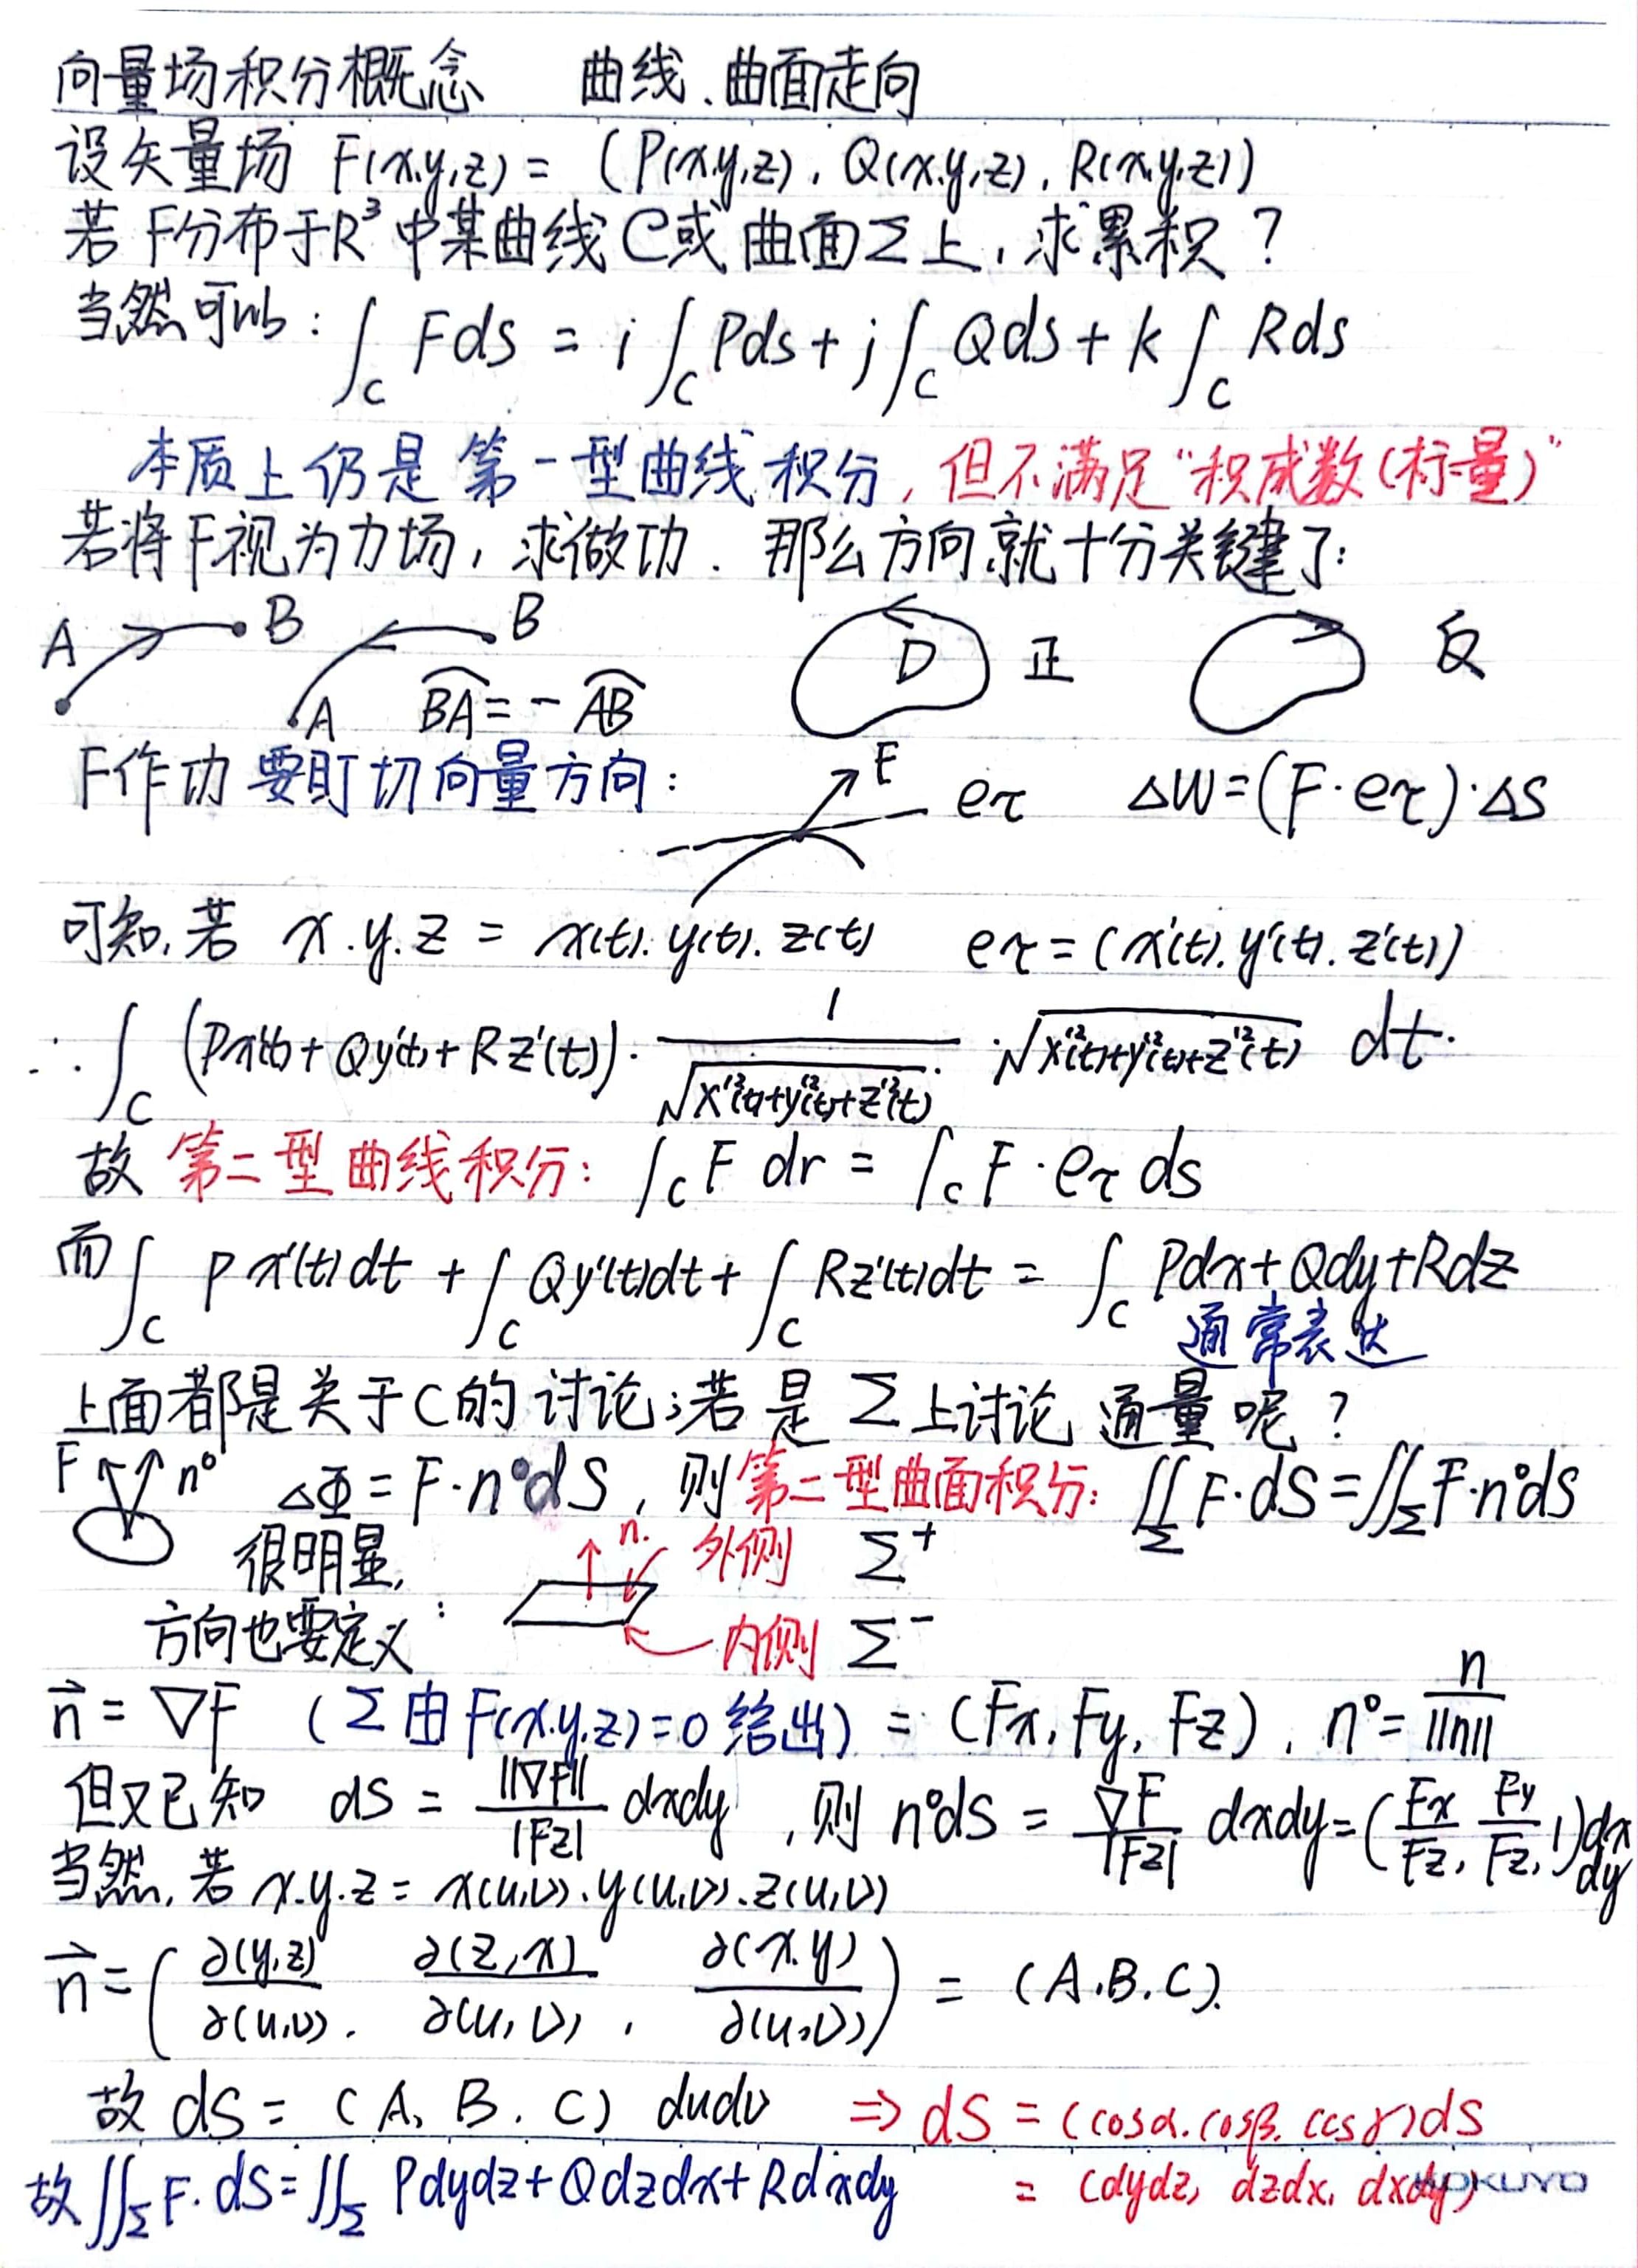 向量场积分概念 曲线、曲面走向
设矢量场 F(x,y,z) = (P(x,y,z), Q(x,y,z), R(x,y,z))
若F分布于R³中某曲线C或曲面Σ上,求累积?
当然可以: ∫_C Fds = i∫_C Pds + j∫_C Qds + k∫_C Rds
本质上仍是第一型曲线积分,但不满足"积成数(标量)"
若将F视为力场,求做功.那么方向就十分关键了:
A B A B BA = - AB D 正 反
F作功要盯切向量方向: F eτ ΔW = (F·eτ)·ΔS
可知,若 x.y.z = x(t).y(t).z(t) eτ = (x'(t).y'(t).z'(t))
∴ ∫_C (Px'(t)+Qy'(t)+Rz'(t))· 1/√(x'²(t)+y'²(t)+z'²(t)) · √(x'²(t)+y'²(t)+z'²(t)) dt.
故 第二型曲线积分: ∫_C F dr = ∫_C F·eτ ds
而 ∫_C Px'(t)dt + ∫_C Qy'(t)dt + ∫_C Rz'(t)dt = ∫_C Pdx+Qdy+Rdz
通常表达
上面都是关于C的讨论;若是Σ上讨论通量呢?
F n° ΔΦ = F·n°dS, 则第二型曲面积分: ∬_Σ F·dS = ∬_Σ F·n°dS
很明显, n. 外侧 Σ⁺
方向也要定义: 内侧 Σ⁻
n⃗ = ∇F (Σ由F(x.y.z)=0给出) = (Fx, Fy, Fz), n° = n/||n||
但又已知 dS = ||∇F||/|Fz| dxdy, 则 n°dS = ∇F/|Fz| dxdy = (Fx/Fz, Fy/Fz, 1)dxdy
当然,若 x.y.z = x(u,v).y(u,v).z(u,v)
n⃗ = (∂(y,z)/∂(u,v), ∂(z,x)/∂(u,v), ∂(x.y)/∂(u,v)) = (A.B.C).
故 dS = (A, B, C) dudv ⇒ dS = (cosα.cosβ.cosγ)dS
故 ∬_Σ F·dS = ∬_Σ Pdydz+Qdzdx+Rdxdy = (dydz, dzdx, dxdy)
KOKUYO